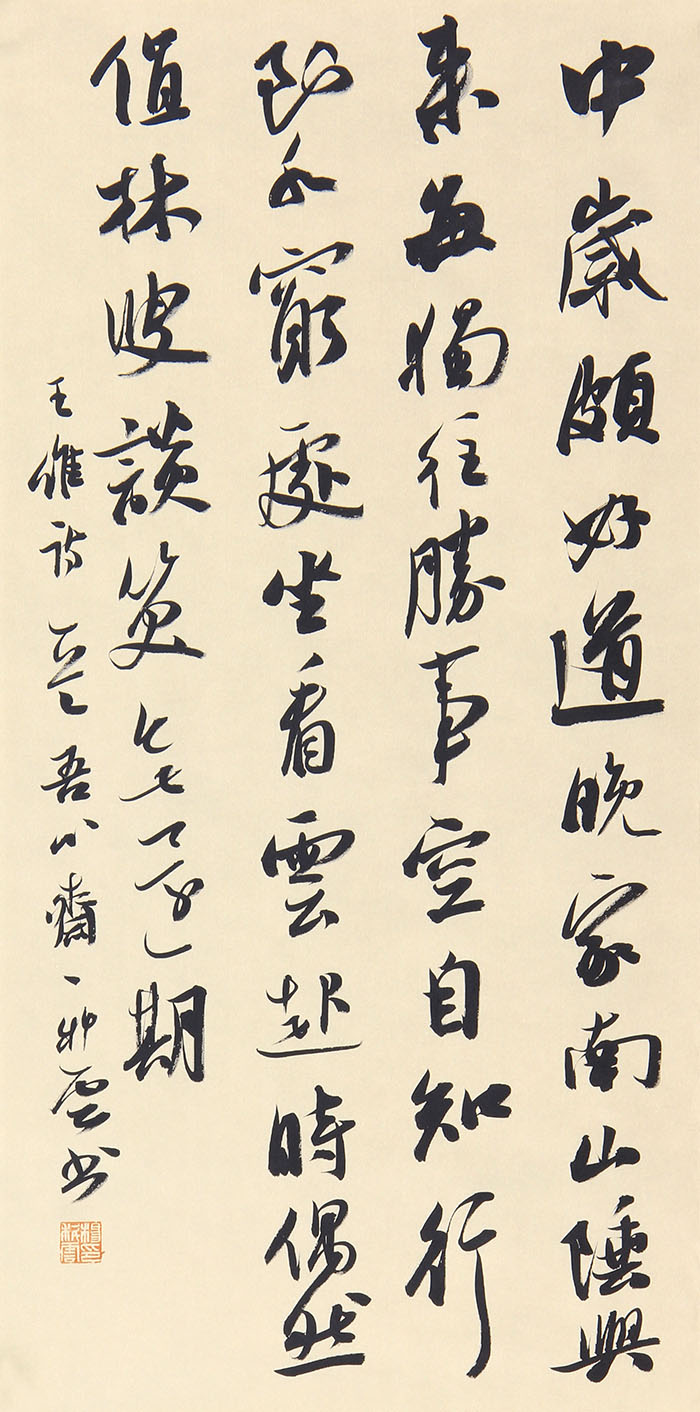 中歲頗好道晚家南山陲興
來每獨往勝事空自知行
到水窮處坐看雲起時偶然
值林叟談笑無還期
王維詩 吾心齋 雲书